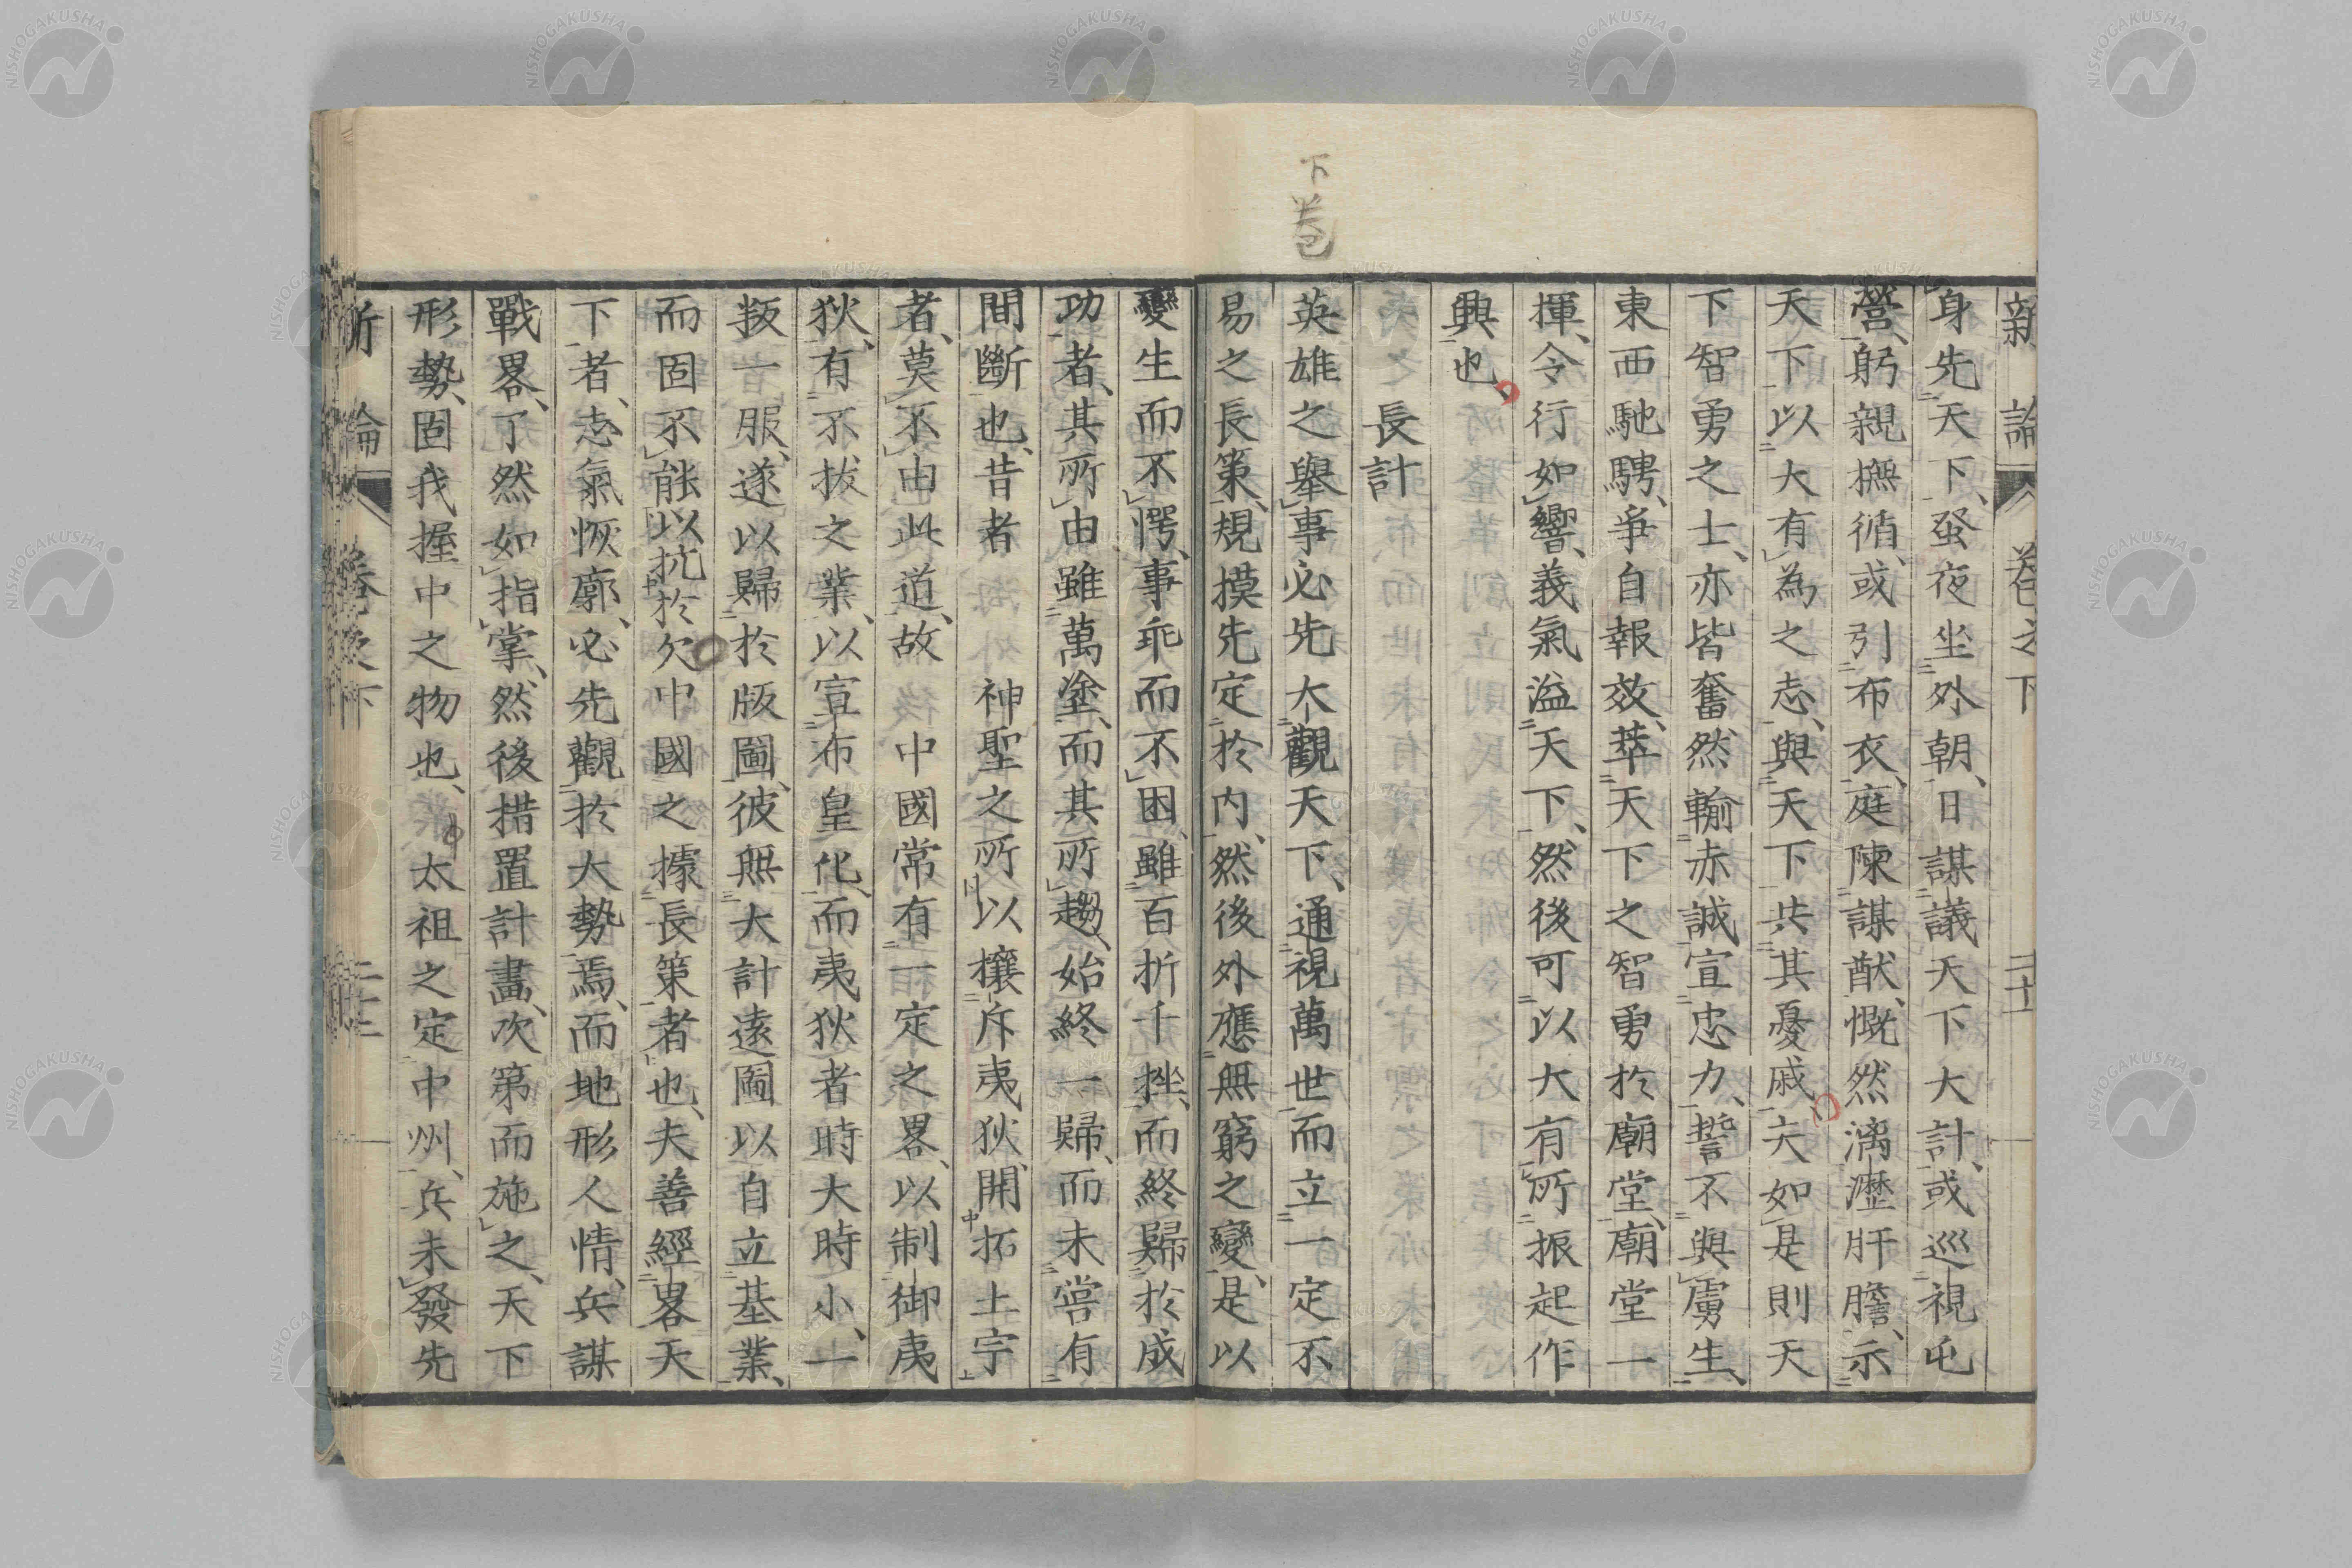 下巻
新論 卷之下 二十
身先天下、蚤夜坐外朝、日謀議天下大計、或巡視屯
營、躬親撫循、或引布衣、庭陳謀猷、慨然漓瀝肝膽、示
天下以大有為之志、與天下共其憂戚、夫如是則天
下智勇之士、亦皆奮然輸赤誠宣忠力、誓不與虜生、
東西馳騁、爭自報效、萃天下之智勇於廟堂、廟堂一
揮、令行如響、義氣溢天下、然後可以大有所振起作
興也、
長計
英雄之舉事必先大觀天下、通視萬世而立一定不
易之長策、規摸先定於内、然後外應無窮之變、是以
變生而不愕、事乖而不困、雖百折千挫、而終歸於成
功者、其所由雖萬塗、而其所趨、始終一歸、而未嘗有
間斷也、昔者 神聖之所以攘斥夷狄、開拓土宇
者、莫不由此道、故 中國常有一定之畧、以制御夷
狄、有不拔之業、以宣布皇化、而夷狄者時大時小、一
叛一服、遂以歸於版圖、彼無大計遠圖以自立基業、
而固不能以抗於欠中國之據長策者也、夫善經畧天
下者、志氣恢廓、必先觀於大勢焉、而地形人情、兵謀
戰畧、了然如指掌、然後措置計畫、次第而施之、天下
形勢、固我握中之物也、太祖之定中州、兵未發先
新論 卷之下